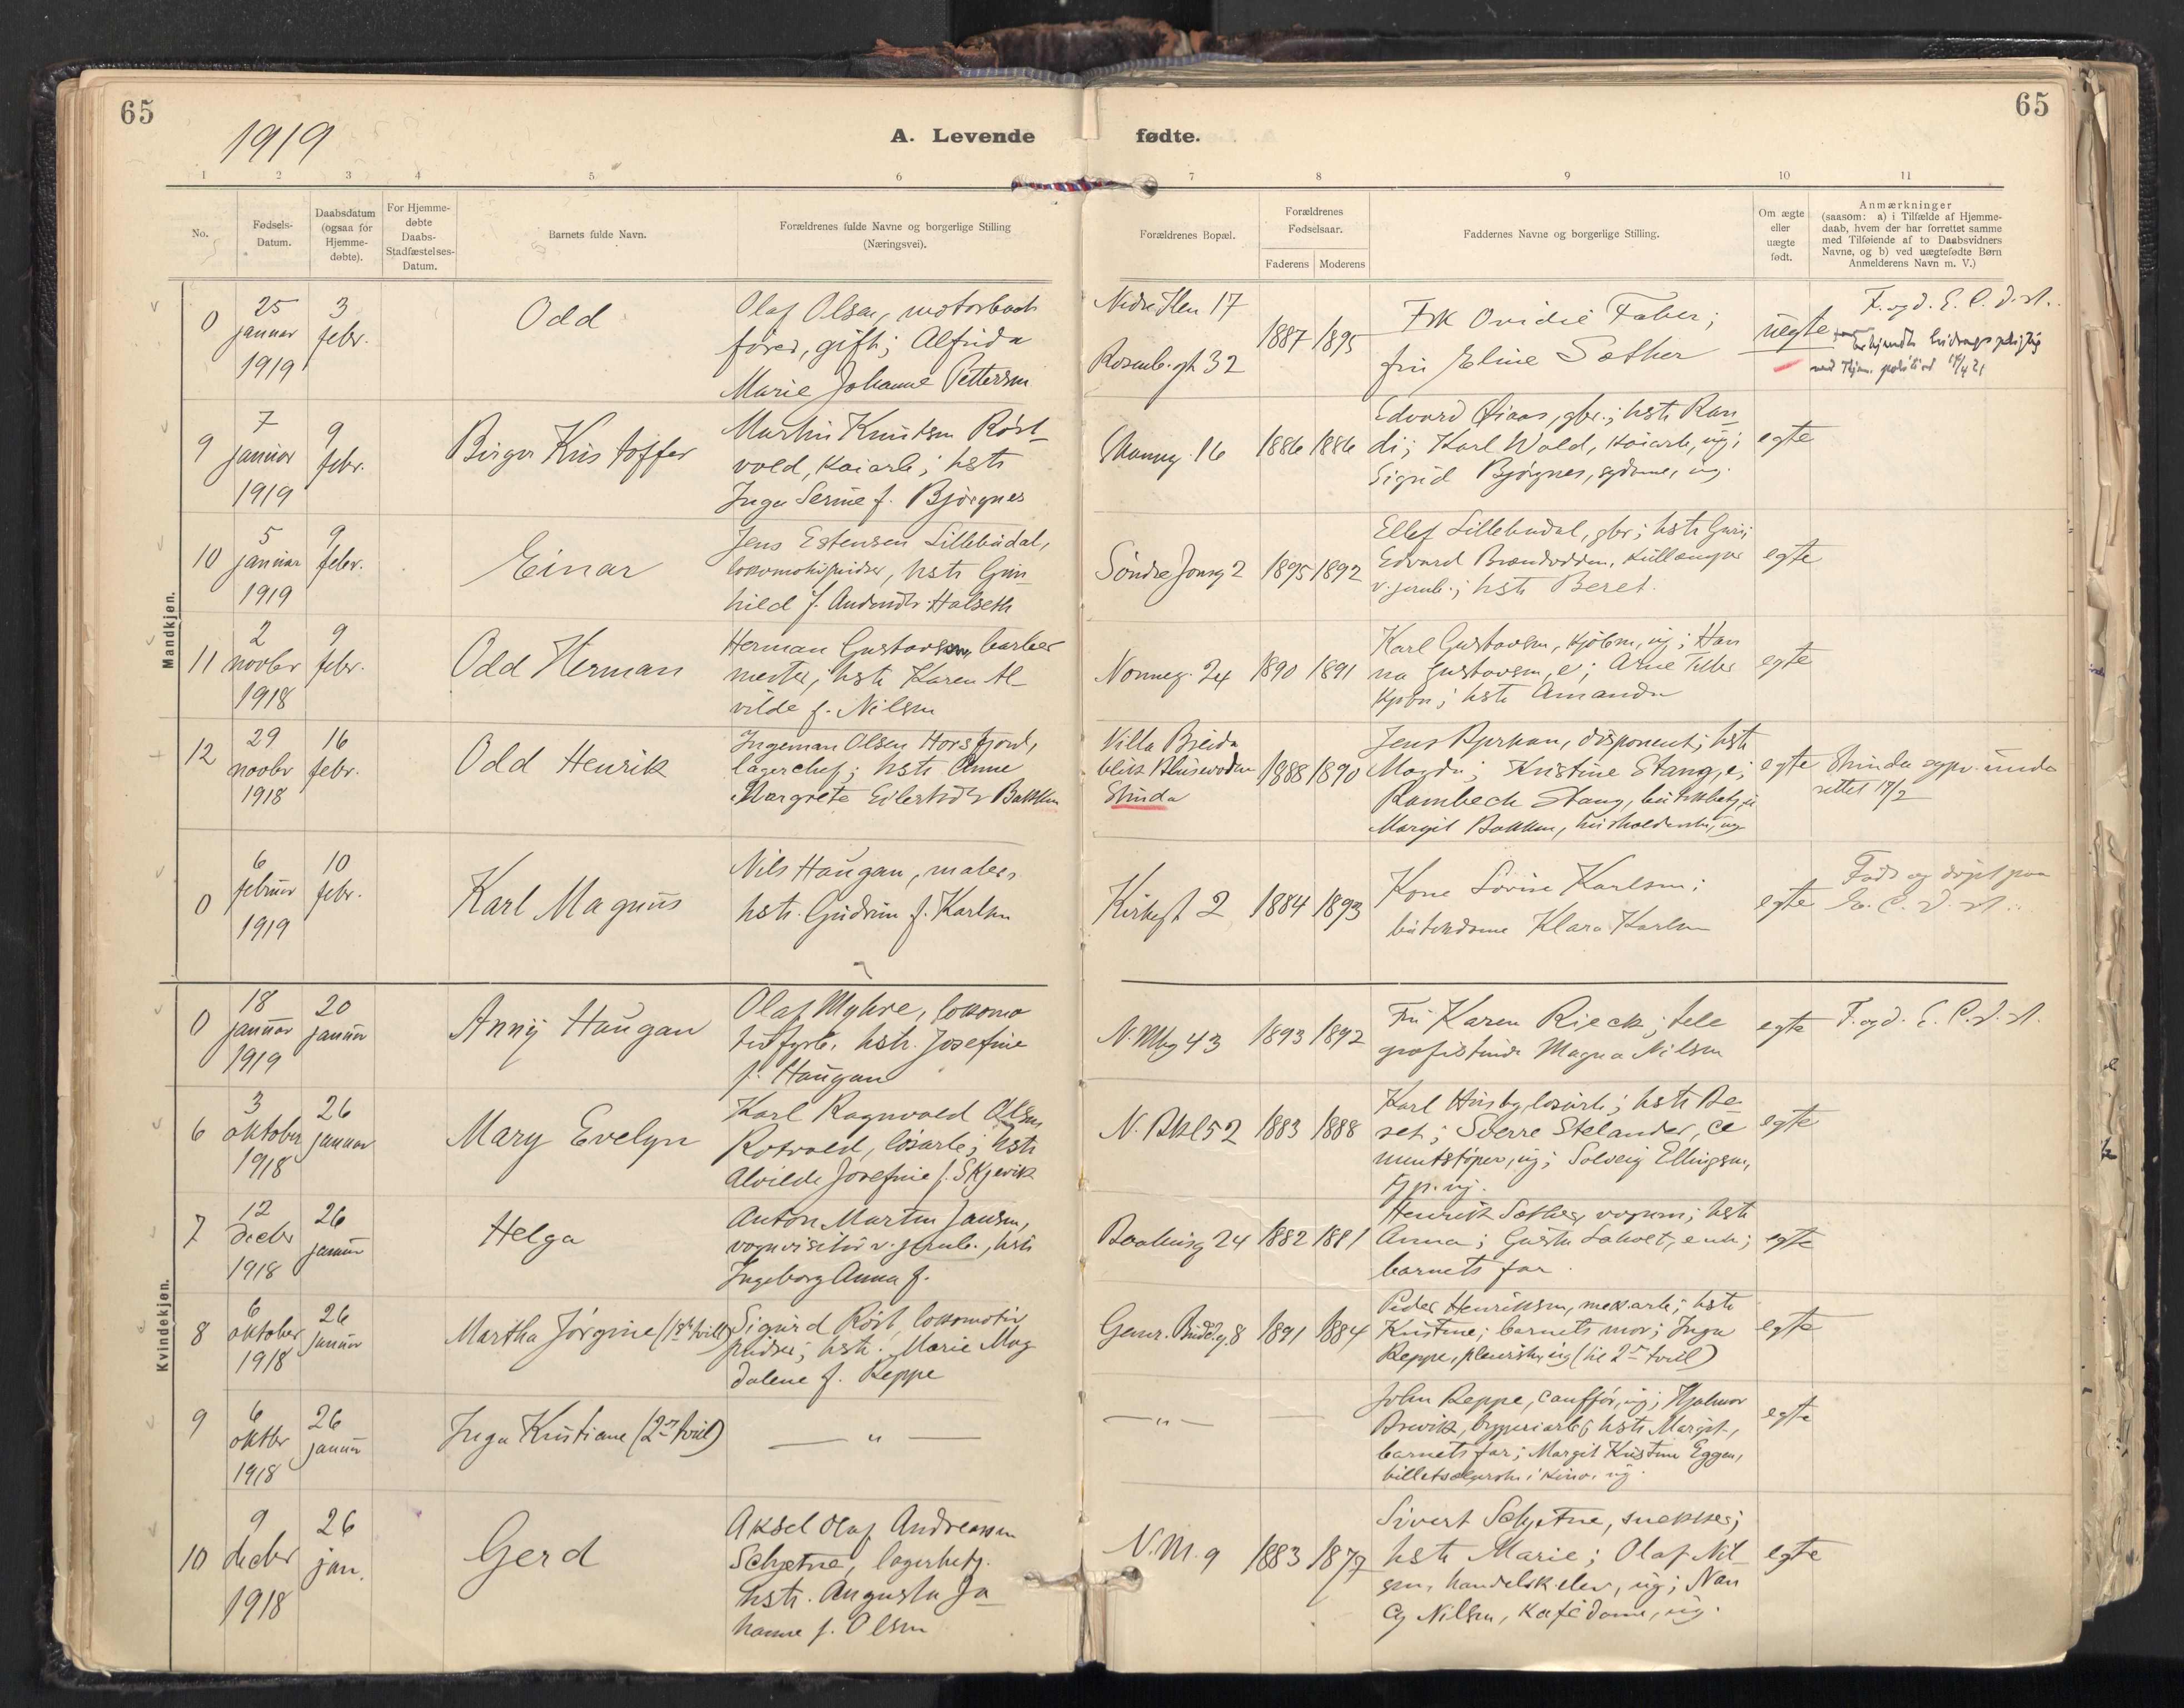 65
65
1919
A. Levende fødte.
1 2 3 4 5 6 7 8 9 10 11
No.
Fødsels-
Datum.
Daabsdatum
(ogsaa for
Hjemme-
døbte).
For Hjemme-
døbte
Daabs-
Stadfæstelses-
Datum.
Barnets fulde Navn.
Forældrenes fulde Navne og borgerlige Stilling
(Næringsvei).
Forældrenes Bopæl.
Forældrenes
Fødselsaar.
Faderens Moderens
Faddernes Navne og borgerlige Stilling.
Om ægte
eller
uægte
født.
Anmærkninger
(saasom: a) i Tilfælde af Hjemme-
daab, hvem der har forrettet samme
med Tilføiende af to Daabsvidners
Navne, og b) ved uægtefødte Børn
Anmelderens Navn m. V.)
Mandkjøn.
0
25
januar
1919
3
febr.
Odd
Olaf Olsen, motorbaat
fører, gift; Alfrida
Marie Johanne Pettersen
Nedre Ilen 17
Rosenb.gt 32
1887 1895
Frk Ovidie Faber;
fru Eline Sæther
uegte
F. og d. E. C. D. st.
bidragspligtig
9
7
januar
1919
9
febr.
Birger Kristoffer
Martin Knutsen Röst-
vold, kaiarb; hstr
Inga Serine f. Bjørgnes
16
1886 1886
Edvard Øiaas, gbr.; hstr Ran-
di; Karl Wold, kaiarb, ug;
Sigrid Bjørgnes, sydame, ug.
egte
10
5
januar
1919
9
febr.
Einar
Jens Estensen Lillebudal,
lokomotivpudser, hstr Gun-
hild f. Andersdtr Halseth
Søndre Jonsg 2
1895 1892
Ellef Lillebudal, gbr; hstr Guri;
Edvard
v. jernb.; hstr Beret.
egte
11
2
novbr
1918
9
febr.
Odd Herman
Herman Gustavsen, barber
mester, hstr Karen Al-
vilde f. Nilsen
Nonneg. 24
1890 1891
Karl Gustavsen, kjøbm, ug; Han
na Gustavsen, e; Arne Tiller
kjøbm; hstr Amanda
egte
12
29
novbr
1918
16
febr.
Odd Henrik
Ingeman Olsen Horsfjord,
lagerchef; hstr Anne
Margrete Eilertsdtr Bakken
Villa Breida
blik
Strinda
1888 1890
Jens disponent; hstr
Magda; Kristine Stang, e;
Rambech Stang, butikbetj, ug
Margit Bakken, husholderske, ug
egte
Strinda sogn. under
rettet 17/2
0
6
februar
1919
10
febr.
Karl Magnus
Nils Haugan, maler,
hstr. Gudrun f. Karlsen
Kirkegt 2
1884 1893
Kone Lovise Karlsen;
butikdame Klara Karlsen
egte
Født og døpt paa
E. C. D. st.
Kvindekjøn.
0
18
januar
1919
20
januar
Anny Haugan
Olaf Myhre, lokomo
tivfyrb. hstr. Josefine
f. Haugan
N. Mbg 43
1893 1892
Fru Karen Rieck; tele
grafistinde Magna Nilsen
egte
F. og d. E. C. D. st.
6
3
oktober
1918
26
januar
Mary Evelyn
Karl Ragnvald Olsen
Rotvold, løsarb; hstr
Alvilde Josefine f. Skjervik
N. Bkl 52
1883 1888
Karl Husby, løsarb; hstr Be-
ret; Sverre Stelander, ce
mentstøper, ug; Solveig Ellingsen,
tjp. ug.
egte
7
12
decbr
1918
26
januar
Helga
Anton Martin Jansen,
vognvisitør v. jernb., hstr
Ingeborg Anna f.
Baahusg 24
1882 1881
Henrik Sæther, vognm; hstr
Anna; enk;
barnets far.
egte
8
6
oktober
1918
26
januar
Martha Jørgine (1ste tvill)
Sigurd Röst, lokomotiv
pudser; hstr. Marie Mag
dalene f. Reppe
Genr. Buddg. 8
1891 1884
Peder Henriksen, mek.arb; hstr
Kristine; barnets mor; Inga
Reppe, ug (til 2en tvill)
egte
9
6
oktbr
1918
26
januar
Inga Kristiane (2en tvill)
— " —
— " —
—
John Reppe, cauffør, ug; Hjalmar
Brevik, bryggeriarb; hstr Margit,
barnets far; Margit Kristine Eggen,
billetsælgerske i kino, ug.
egte
10
9
decbr
1918
26
jan.
Gerd
Aksel Olaf Andreassen
Schjetne, lagerbetj.
hstr. Augusta Jo-
hanne f. Olsen
N. M. 9
1883 1879
Sivert Schjetne, snekker;
hstr Marie; Olaf Nil-
sen, handelsk.elev, ug; Nan
cy Nilsen, kafédame, ug.
egte